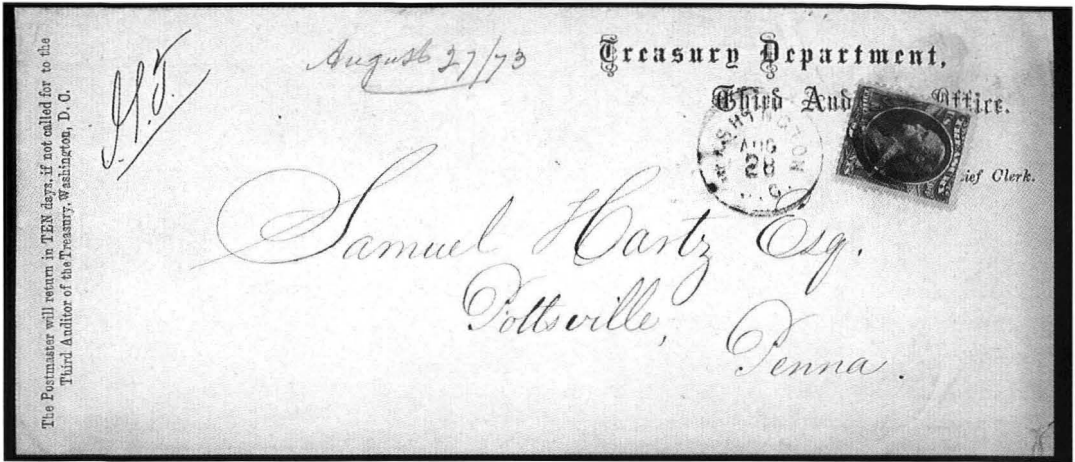 The Postmaster will return in TEN days, if not called for to the
Third Auditor of the Treasury, Washington, D. C.
August 27/73
Treasury Department,
Third Aud Office.
WASHINGTON
AUG
28
ief Clerk.
Samuel Hartz Esq.
Pottsville,
Penna.